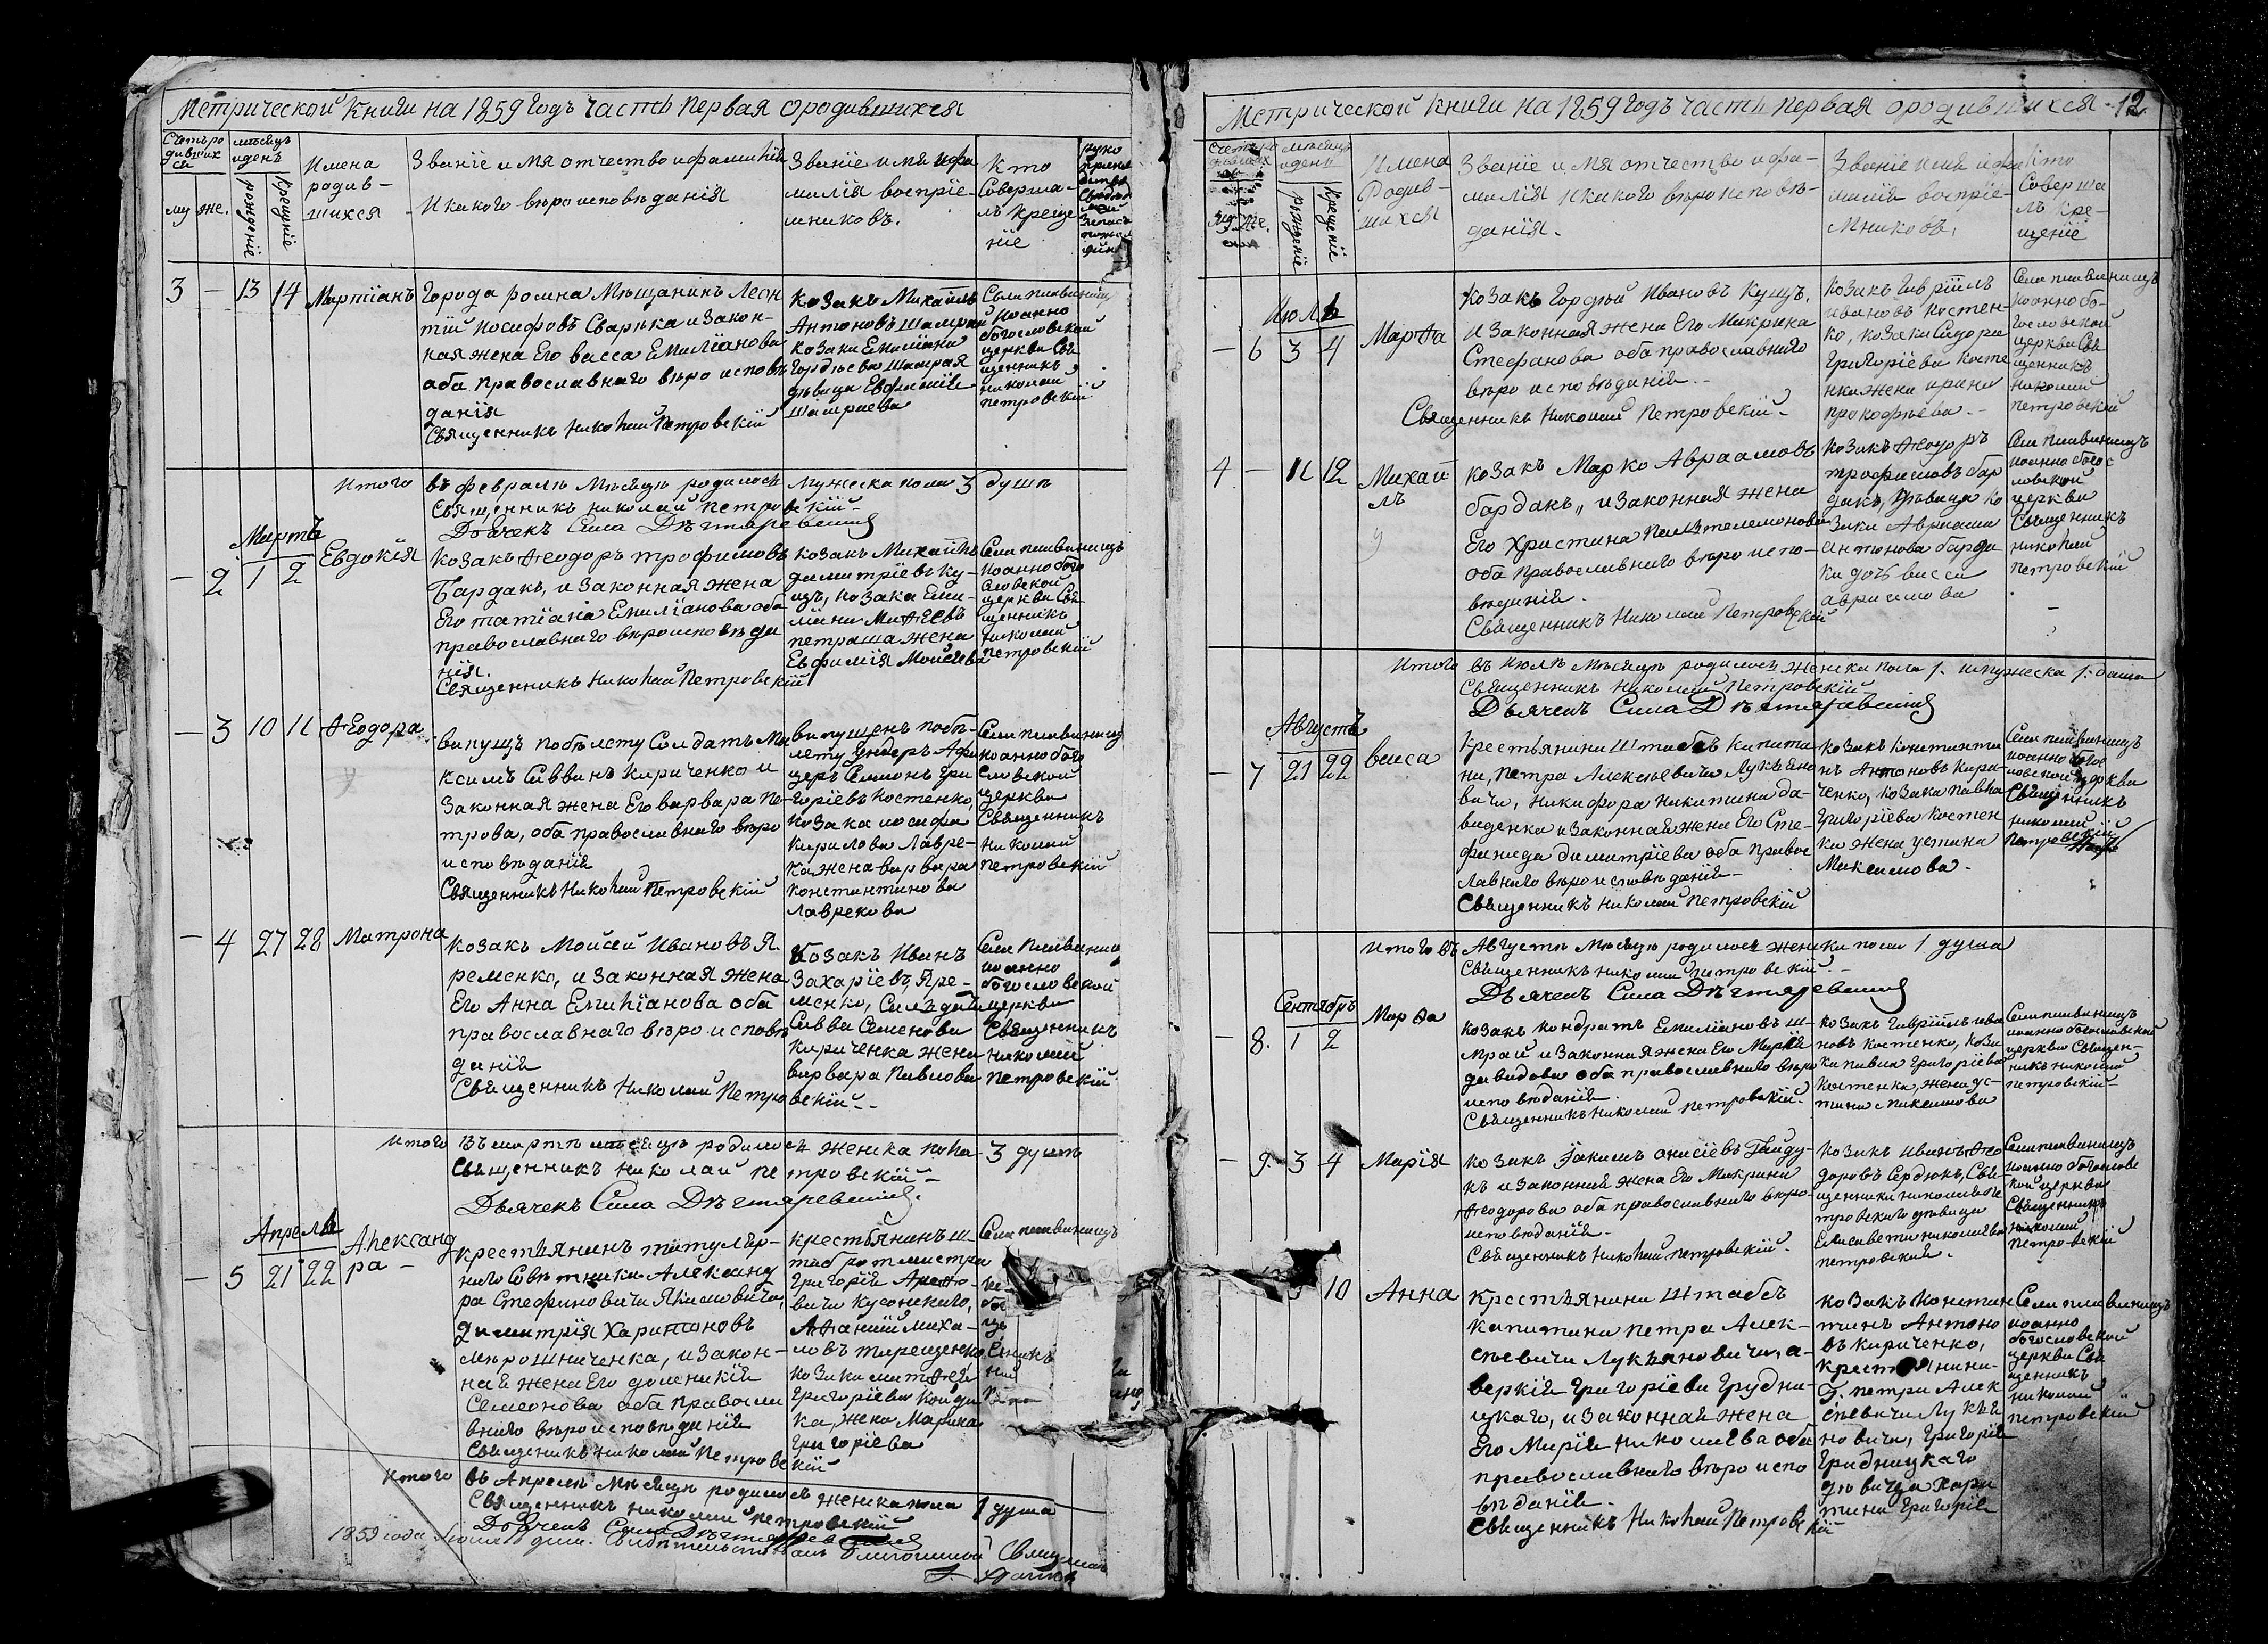 Метрической книги на 1859 годъ часть первая ородившихся
Счетъ ро
дивших
ся
муж.
же.
мѣсяцъ
и день
рожденіе
крещеніе
Имена
родив-
шихся
Званіе имя отчество и фамилія
и какого вѣроисповѣданія
Званіе имя и фа
милія воспріе-
мниковъ.
Кто
соверша-
лъ креще
ніе
3 — 13 14 Мартіанъ
Города ромна Мѣщанинъ Леон
тій Іосифовъ Сварика и закон-
ная жена Его васса Емиліанова
оба православнаго вѣро исповѣ
данія
Священникъ Николай Петровскій
козакъ Михаилъ
Антоновъ Шамрай
козака Емиліана
Гордѣева Шамрая
дѣвица Евфимія
Шамраева
Села пливиницъ
Іоанно
богословской
церкви Свя
щенникъ
николай
петровскій
Итого въ февралѣ Мѣсяцѣ родилось мужеска пола 3 душъ
Священникъ николай петровскій
Дьячекъ Сила Дѣгтяревскій
Мартъ
— 2 1 2 Евдокія
козакъ Ѳеодоръ трофимовъ
Бардакъ, и законная жена
Его татіана Емиліанова оба
православнаго вѣроисповѣда
нія.
Священникъ Николай Петровскій
козакъ Михаилъ
димитріевъ ку-
цъ, козака Еми-
ліана Матѳеева
петраша жена
Евфимія Моисѣева
Села пливиницъ
Іоанно бого
словской
церкви Свя
щенникъ
николай
петровскій
— 3 10 11 Ѳеодора
випущъ побѣлету Солдатъ Ма
ксимъ Саввинъ Кириченко и
законная жена Его варвара Пе-
трова, оба православнаго вѣро
исповѣданія
Священникъ Николай Петровскій
випущенъ побѣ-
лету Ундеръ Афи
церъ Семіонъ Гри
горіевъ Костенко,
козака иосифа
Кирилова Лавре-
ка жена варвара
константинова
лаврекова
Села пливиницъ
иоанно бого
словской
церкви
Священникъ
николай
петровскій
— 4 27 28 Матрона
козакъ Моисей Ивановъ Я-
ременко, и законная жена
Его Анна Емиліанова оба
православнаго вѣро исповѣ
данія
Священникъ Николай Петровскій
Козакъ Иванъ
Захаріевъ Яре-
менко,
Савва Семенова
Кириченка жена
варвара Павлова
Села Пливиниц
иоанно
богословской
церкви
Священникъ
николай
петровскій
Итого въ мартѣ мѣсяцѣ родилось женска пола 3 душъ
Священникъ николай петровскій
Дьячекъ Сила Дѣгтяревскій.
Апрель
— 5 21 22 Александ
ра
крестьянинъ титуляр-
наго Совѣтника Александ
ра Стефановича Якимовича,
Димитрія Харитоновъ
Мѣрошниченка, и закон-
ная жена Его доменикія
Семенова оба правосла
внаго вѣроисповѣданія
Священникъ николай Петровскій
крестьянинъ ш-
таб ротмистра
Григорія
вича
Аѳанасій Миха-
ловъ терещенко,
козака матѳея
Григоріева
ка, жена Марина
Григоріева
Села пливиницъ
Итого въ Апреле Мѣсяцѣ родилось женска пола 1 душа
Священникъ николай петровскій
Дьячекъ Сила Дѣгтяревскій
1859 года Свидѣтельствовалъ благочинный Священникъ
Метрической книги на 1859 годъ часть первая ородившихся 12
мѣсяцъ
и день
рожденіе
крещеніе
Имена
Родив-
шихся
Званіе имя отчество и фа-
милія и какого вѣроисповѣ-
данія.
Званіе имя и фа
милія воспріе-
мниковъ.
Кто
соверша
лъ кре-
щеніе
Июль
— 6 3 4 Марѳа
козакъ Гордѣй Ивановъ Куцъ,
и законная жена Его Макрина
Стефанова оба православнаго
вѣро исповѣданія.
Священникъ Николай Петровскій
козакъ Гавріилъ
ивановъ костен-
ко, козака Сидора
григоріева косте
нка жена ирина
прокофіева.
Села пливиницъ
иоанно бо-
гословской
церкви Свя
щенникъ
николай
петровскій
4 — 11 12 Михаи
лъ
козакъ Марко Авраамовъ
бардакъ, и законная жена
Его Христина Пантелемонова
оба Православнаго вѣро испо-
вѣданія.
Священникъ Николай Петровскій
козакъ Ѳеодоръ
трофимовъ бар
дакъ, дѣвица ко
зака Авраама
антонова барда
ка дочъ васса
аврамова
Села пливиницъ
иоанно богос
ловской
церкви
Священникъ
николай
петровскій
Итого въ июлѣ мѣсяцѣ родилось женска пола 1. имужеска 1. душа
Священникъ николай петровскій
Дьячекъ Сила Дѣгтяревскій
Августъ
— 7 21 22 васса
крестьянина Штабсъ Капита
на, Петра Алексѣевича Лукьяно
вича, никифора никитина да-
виденка и законная жена Его Сте-
фанида димитріева оба правос
лавнаго вѣро исповѣданія
Священникъ николай петровскій
козакъ константи
нъ Антоновъ Кири-
ченко, козака павла
Григоріева Костен
ка жена устина
Максимова.
Села пливиницъ
иоанно богос
ловской церкви
Священникъ
николай
петровскій
Итого въ Августѣ мѣсяцѣ родилось женска пола 1 душа
Священникъ николай петровскій
Дьячекъ Сила Дѣгтяревскій
Сентябръ
— 8. 1 2 Марѳа
козакъ кондратъ Емиліановъ ш-
мрай и законная жена Его Марія
давидова оба православнаго вѣро
исповѣданія.
Священникъ Николай петровскій.
козакъ Гавріилъ ива
новъ костенко, коза
ка павла Григоріева
костенка, жена ус-
тина максимова
Села пливиницъ
иоанно богословской
церкви Священ-
никъ николай
петровскій
— 9. 3 4 Марія
козакъ Іакимъ онисіевъ Гайду-
къ и законная жена Его Макрина
Ѳеодорова оба православнаго вѣро-
исповѣданія.
Священникъ Николай петровскій.
козакъ Иванъ Ѳео
доровъ Сердюкъ, Свя-
щенника николая Пе
тровскаго дѣвица
Елисавета николаева
петровская.
Села пливиницъ
иоанно богослове
кой церкви
Священникъ
николай
петровскій
10 Анна
крестьянина Штабсъ
капитана петра Алек-
сѣевича Лукьяновича, а-
веркій Григоріева Грудни-
цкаго, и законная жена
Его Марія николаева оба
православнаго вѣро испо
вѣданія.
Священникъ Николай Петровскій
козакъ констан
тинъ Антоно
въ кириченко,
крестьянина
Г. петра Алек
сѣевича Лукья
новича, григорія
Гридницкаго
дѣвица хари
тина григоріе
Села пливиницъ
иоанно
богословской
церкви Свя
щенникъ
николай
петровскій